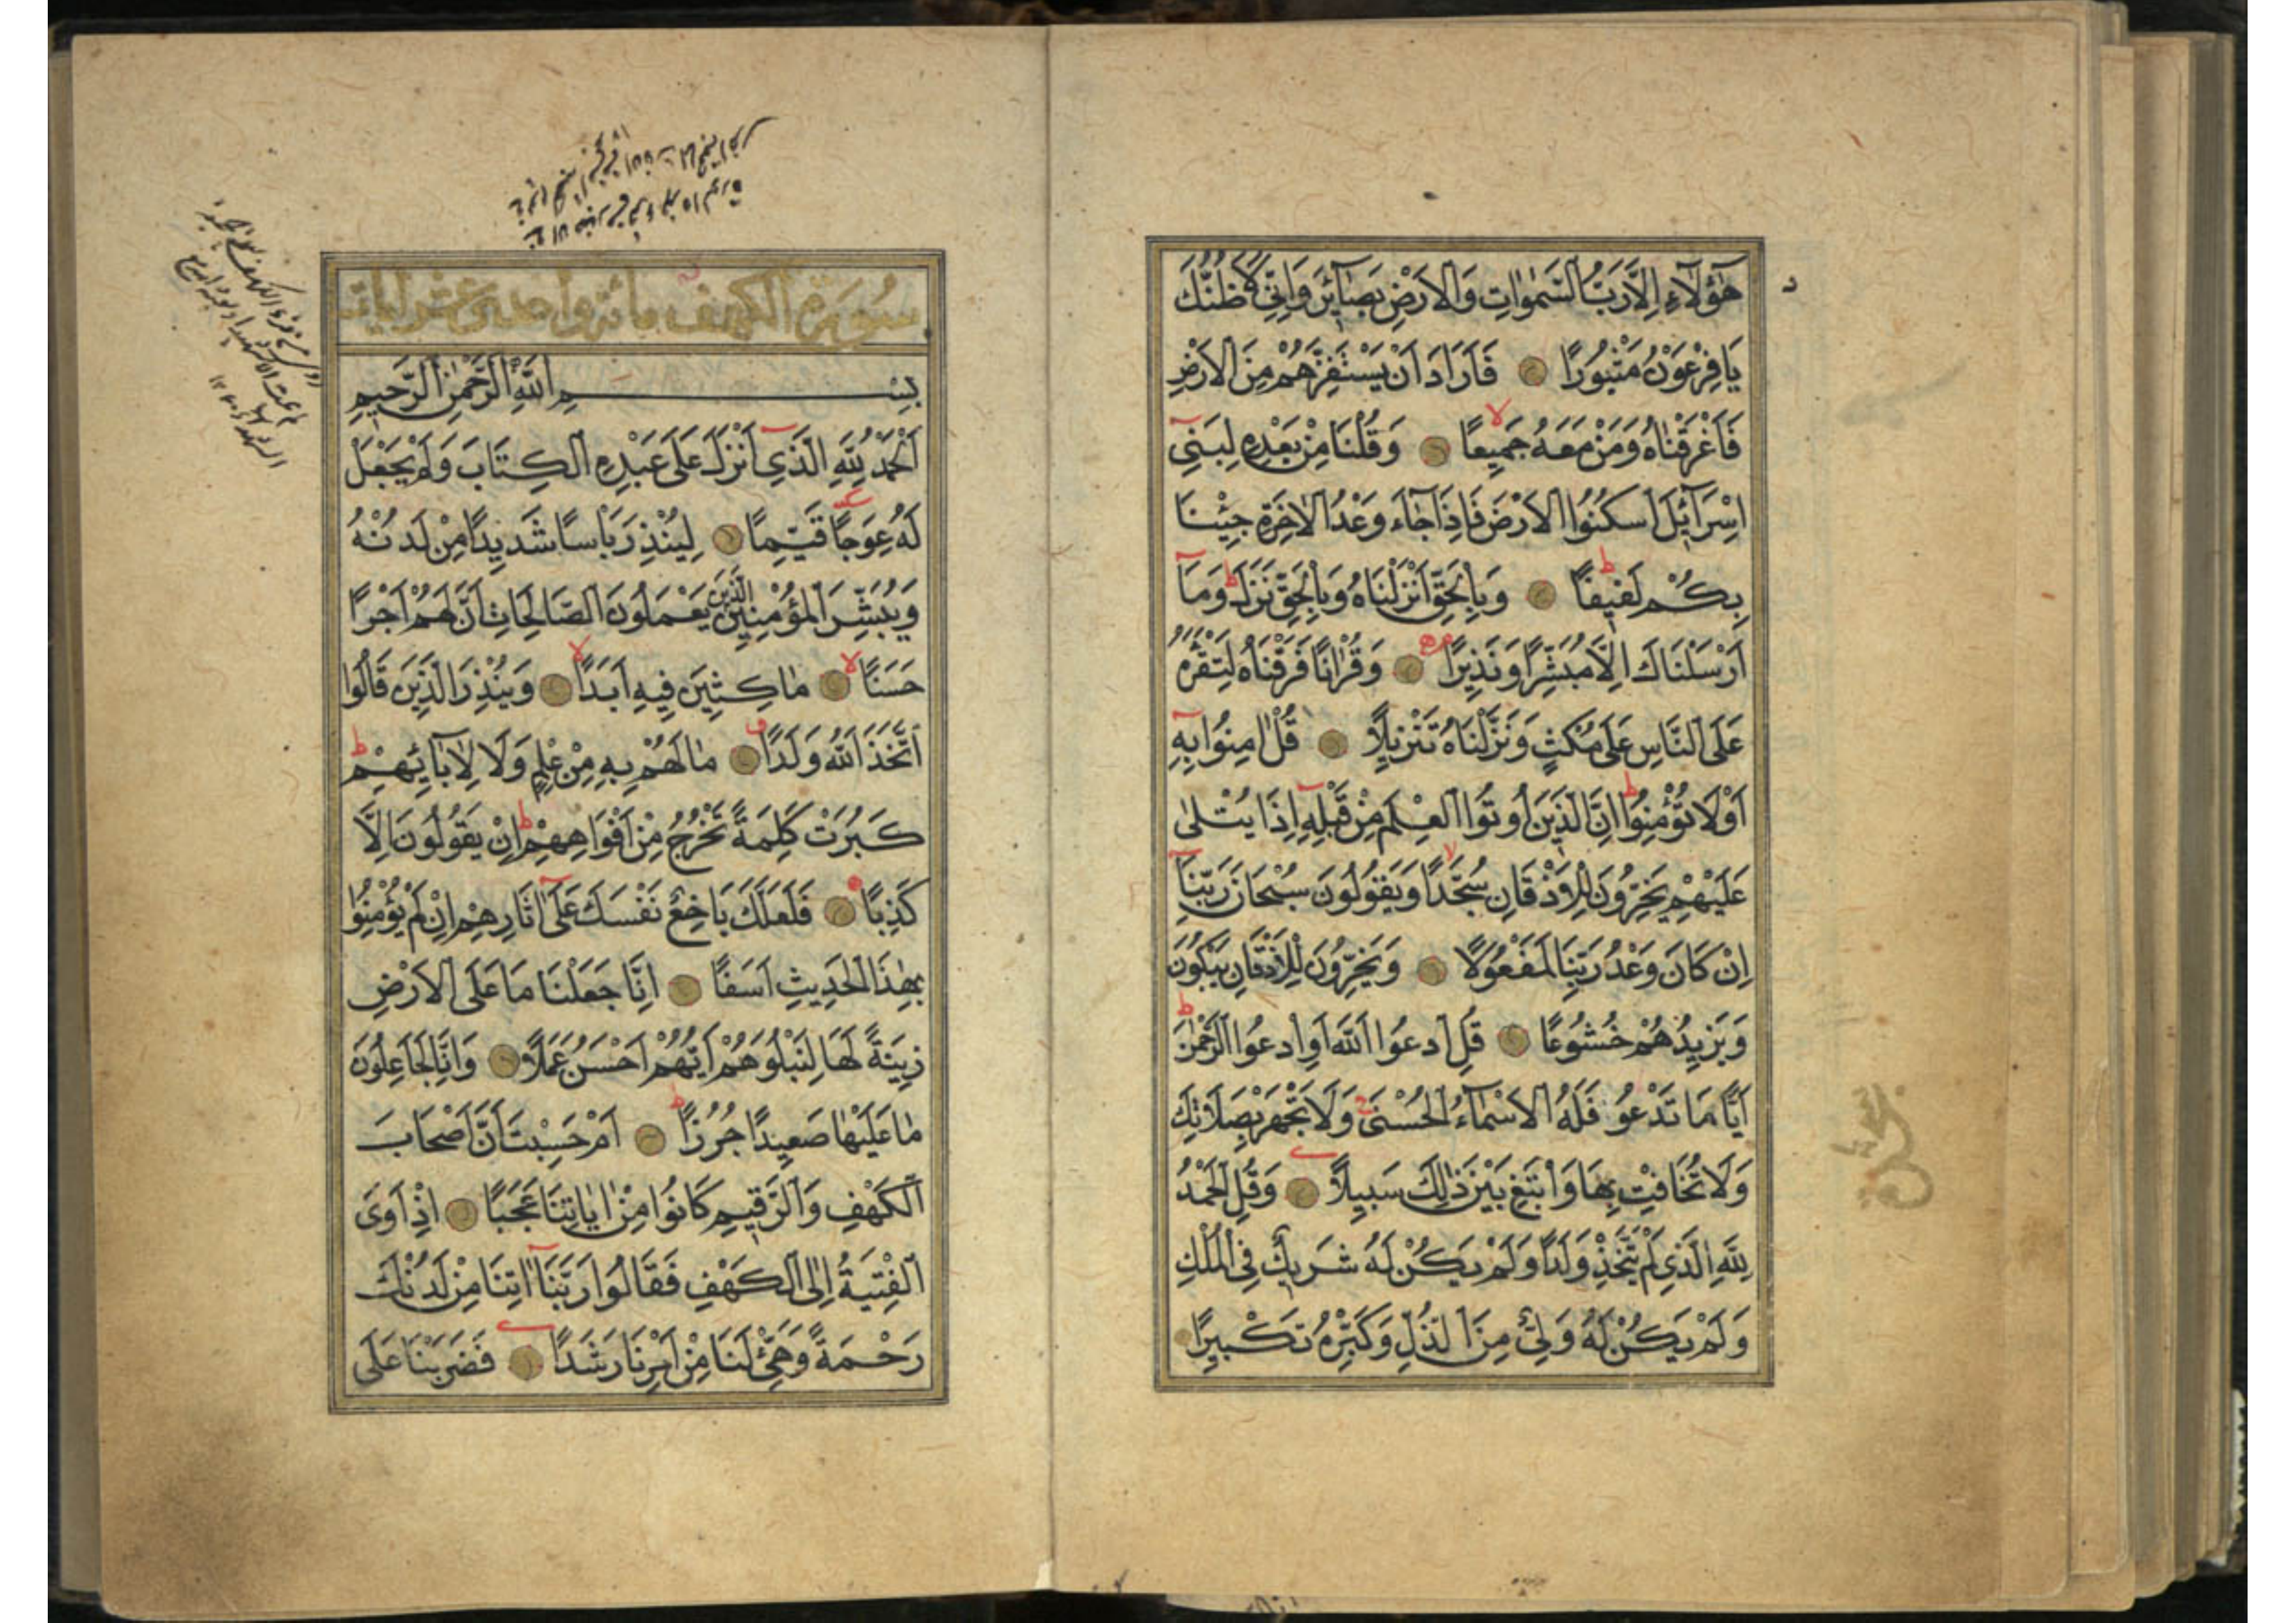 هٰٓؤُلَآءِ اِلَّا رَبُّ السَّمٰوَاتِ وَالْاَرْضِ بَصَآئِرَ وَاِنّٖى لَاَظُنُّكَ
يَا فِرْعَوْنُ مَثْبُورًا فَاَرَادَ اَنْ يَسْتَفِزَّهُمْ مِنَ الْاَرْضِ
فَاَغْرَقْنَاهُ وَمَنْ مَعَهُ جَمٖيعًا وَقُلْنَا مِنْ بَعْدِهٖ لِبَنٖٓى
اِسْرَآئٖلَ اسْكُنُوا الْاَرْضَ فَاِذَا جَآءَ وَعْدُ الْاٰخِرَةِ جِئْنَا
بِكُمْ لَفٖيفًا وَبِالْحَقِّ اَنْزَلْنَاهُ وَبِالْحَقِّ نَزَلَ وَمَآ
اَرْسَلْنَاكَ اِلَّا مُبَشِّرًا وَنَذٖيرًا وَقُرْاٰنًا فَرَقْنَاهُ لِتَقْرَاَهُ
عَلَى النَّاسِ عَلٰى مُكْثٍ وَنَزَّلْنَاهُ تَنْزٖيلًا قُلْ اٰمِنُوا بِهٖٓ
اَوْ لَا تُؤْمِنُوا اِنَّ الَّذٖينَ اُوتُوا الْعِلْمَ مِنْ قَبْلِهٖٓ اِذَا يُتْلٰى
عَلَيْهِمْ يَخِرُّونَ لِلْاَذْقَانِ سُجَّدًا وَيَقُولُونَ سُبْحَانَ رَبِّنَآ
اِنْ كَانَ وَعْدُ رَبِّنَا لَمَفْعُولًا وَيَخِرُّونَ لِلْاَذْقَانِ يَبْكُونَ
وَيَزٖيدُهُمْ خُشُوعًا قُلِ ادْعُوا اللّٰهَ اَوِ ادْعُوا الرَّحْمٰنَ
اَيًّا مَا تَدْعُو فَلَهُ الْاَسْمَآءُ الْحُسْنٰى وَلَا تَجْهَرْ بِصَلَاتِكَ
وَلَا تُخَافِتْ بِهَا وَابْتَغِ بَيْنَ ذٰلِكَ سَبٖيلًا وَقُلِ الْحَمْدُ
لِلّٰهِ الَّذٖى لَمْ يَتَّخِذْ وَلَدًا وَلَمْ يَكُنْ لَهُ شَرٖيكٌ فِى الْمُلْكِ
وَلَمْ يَكُنْ لَهُ وَلِىٌّ مِنَ الذُّلِّ وَكَبِّرْهُ تَكْبٖيرًا
سورة الكهف مائة واحدى عشر ايات
بِسْمِ اللّٰهِ الرَّحْمٰنِ الرَّحٖيمِ
اَلْحَمْدُ لِلّٰهِ الَّذٖٓى اَنْزَلَ عَلٰى عَبْدِهِ الْكِتَابَ وَلَمْ يَجْعَلْ
لَهُ عِوَجًا قَيِّمًا لِيُنْذِرَ بَاْسًا شَدٖيدًا مِنْ لَدُنْهُ
وَيُبَشِّرَ الْمُؤْمِنٖينَ الَّذٖينَ يَعْمَلُونَ الصَّالِحَاتِ اَنَّ لَهُمْ اَجْرًا
حَسَنًا مَاكِثٖينَ فٖيهِ اَبَدًا وَيُنْذِرَ الَّذٖينَ قَالُوا
اتَّخَذَ اللّٰهُ وَلَدًا مَا لَهُمْ بِهٖ مِنْ عِلْمٍ وَلَا لِاٰبَآئِهِمْ
كَبُرَتْ كَلِمَةً تَخْرُجُ مِنْ اَفْوَاهِهِمْ اِنْ يَقُولُونَ اِلَّا
كَذِبًا فَلَعَلَّكَ بَاخِعٌ نَفْسَكَ عَلٰٓى اٰثَارِهِمْ اِنْ لَمْ يُؤْمِنُوا
بِهٰذَا الْحَدٖيثِ اَسَفًا اِنَّا جَعَلْنَا مَا عَلَى الْاَرْضِ
زٖينَةً لَهَا لِنَبْلُوَهُمْ اَيُّهُمْ اَحْسَنُ عَمَلًا وَاِنَّا لَجَاعِلُونَ
مَا عَلَيْهَا صَعٖيدًا جُرُزًا اَمْ حَسِبْتَ اَنَّ اَصْحَابَ
الْكَهْفِ وَالرَّقٖيمِ كَانُوا مِنْ اٰيَاتِنَا عَجَبًا اِذْ اَوَى
الْفِتْيَةُ اِلَى الْكَهْفِ فَقَالُوا رَبَّنَآ اٰتِنَا مِنْ لَدُنْكَ
رَحْمَةً وَهَيِّئْ لَنَا مِنْ اَمْرِنَا رَشَدًا فَضَرَبْنَا عَلٰٓى